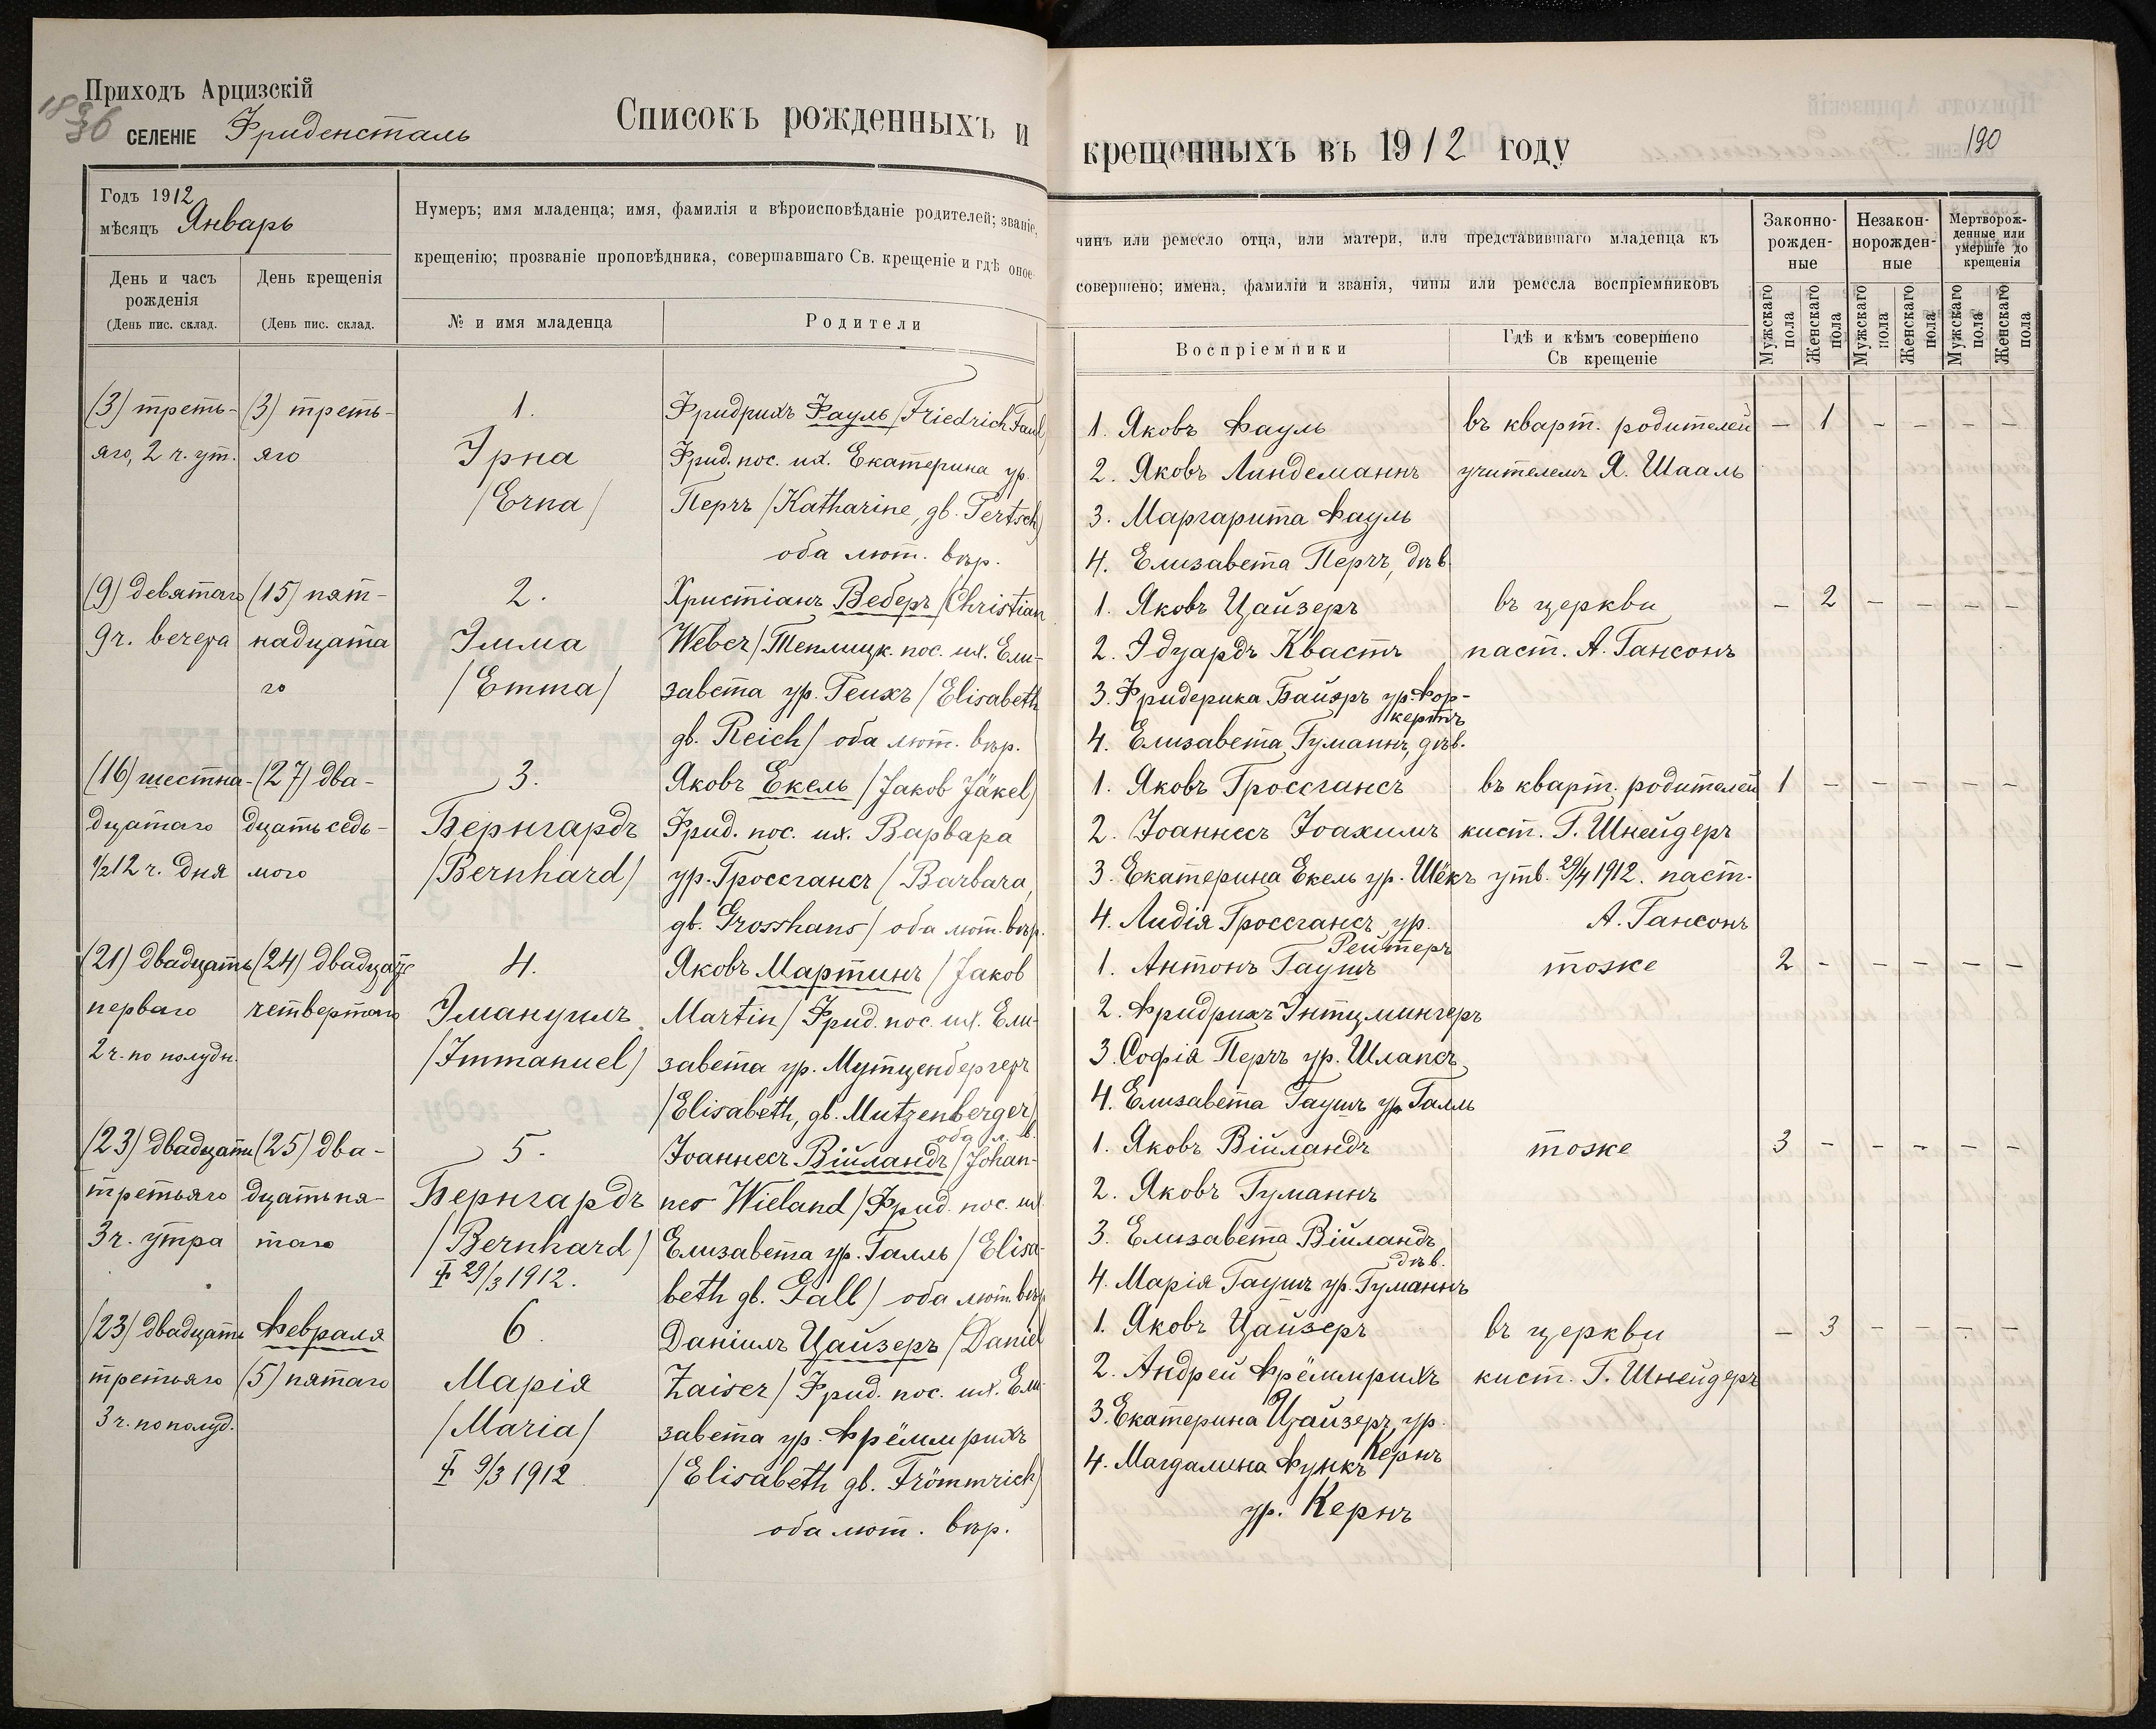 Приходъ Арцизскій
СЕЛЕНІЕ Фриденсталь
Списокъ рожденныхъ и
Годъ 1912
мѣсяцъ Январь
День и часъ рожденія
(День пис. склад.
День крещенія
(День пис. склад.
Нумеръ; имя младенца; имя, фамилія и вѣроисповѣданіе родителей; званіе,
крещенію; прозваніе проповѣдника, совершавшаго Св. крещеніе и гдѣ оное
№ и имя младенца
Родители
(3) треть-
яго, 2 ч. ут.
(3) треть-
яго
1.
Эрна
/Erna/
Фридрихъ Фауль /Friedrich Faul/
Фрид. пос. их. Екатерина ур.
Перчъ /Katharine, gb. Pertsch/
оба лют. вѣр.
(9) девятаго
9 ч. вечера
(15) пят-
надцата
го
2.
Эмма
/Emma/
Христіанъ Веберъ /Christian
Weber/ Теплицк. пос. их. Ели-
завета ур. Рейхъ /Elisabeth
gb. Reich/ оба лют. вѣр.
(16) шестна-
дцатаго
1/2 12 ч. дня
(27) два-
дцать седь-
мого
3.
Бернгардъ
/Bernhard/
Яковъ Екель /Jakob Jäkel/
Фрид. пос. их. Варвара
ур. Гроссгансъ /Barbara,
gb. Grosshans/ оба лют. вѣр.
(21) двадцать
перваго
2 ч. по полудн.
(24) двадцать
четвертаго
4.
Эмануилъ
/Immanuel/
Яковъ Мартинъ /Jakob
Martin/ Фрид. пос. их. Ели-
завета ур. Мутценбергеръ
/Elisabeth, gb. Mutzenberger/
оба л. в.
(23) двадцать
третьяго
3 ч. утра
(25) два-
дцать пя-
таго
5.
Бернгардъ
/Bernhard/
29/3 1912.
Іоаннесъ Війландъ /Johan-
nes Wieland/ Фрид. пос. их.
Елизавета ур. Галль /Elisa-
beth gb. Gall/ оба лют. вѣр.
(23) двадцать
третьяго
3 ч. по полуд.
Февраля
(5) пятаго
6.
Марія
/Maria/
9/3 1912
Даніилъ Цайзеръ /Daniel
Zaiser/ Фрид. пос. их. Ели-
завета ур. Фрёммрихъ
/Elisabeth gb. Frömmrich/
оба лют. вѣр.
190
крещенныхъ въ 1912 году
чинъ или ремесло отца, или матери, или представившаго младенца къ
совершено; имена, фамиліи и званія, чины или ремесла воспріемниковъ
Воспріемники
Гдѣ и кѣмъ совершено
Св крещеніе
Законно-
рожден-
ные
Незакон-
норожден-
ные
Мертворож-
денные или
умершіе до
крещенія
Мужскаго пола
Женскаго пола
Мужскаго пола
Женскаго пола
Мужскаго пола
Женскаго пола
1. Яковъ Фауль
2. Яковъ Линдеманнъ
3. Маргарита Фауль
4. Елизавета Перчъ, дѣв.
въ кварт. родителей
учителемъ Я. Шааль
– 1 – – – –
1. Яковъ Цайзеръ
2. Эдуардъ Квастъ
3. Фридерика Байеръ ур. Фор-
кертъ
4. Елизавета Гуманнъ, дѣв.
въ церкви
паст. А. Гансонъ
– 2 – – – –
1. Яковъ Гроссгансъ
2. Іоаннесъ Іоахимъ
3. Екатерина Екель ур. Шёкъ
4. Лидія Гроссгансъ ур.
Рейтеръ
въ кварт. родителей
кист. Г. Шнейдеръ
утв. 29/4 1912. паст.
А. Гансонъ
1 – – – – –
1. Антонъ Гаушъ
2. Фридрихъ Энтцмингеръ
3. Софія Перчъ ур. Шлапсъ
4. Елизавета Гаушъ ур. Галль
тоже
2 – – – – –
1. Яковъ Війландъ
2. Яковъ Гуманнъ
3. Елизавета Війландъ
дѣв.
4. Марія Гаушъ ур. Гуманнъ
тоже
3 – – – – –
1. Яковъ Цайзеръ
2. Андрей Фрёммрихъ
3. Екатерина Цайзеръ, ур.
Кернъ
4. Магдалина Функъ
ур. Кернъ
въ церкви
кист. Г. Шнейдеръ
– 3 – – – –